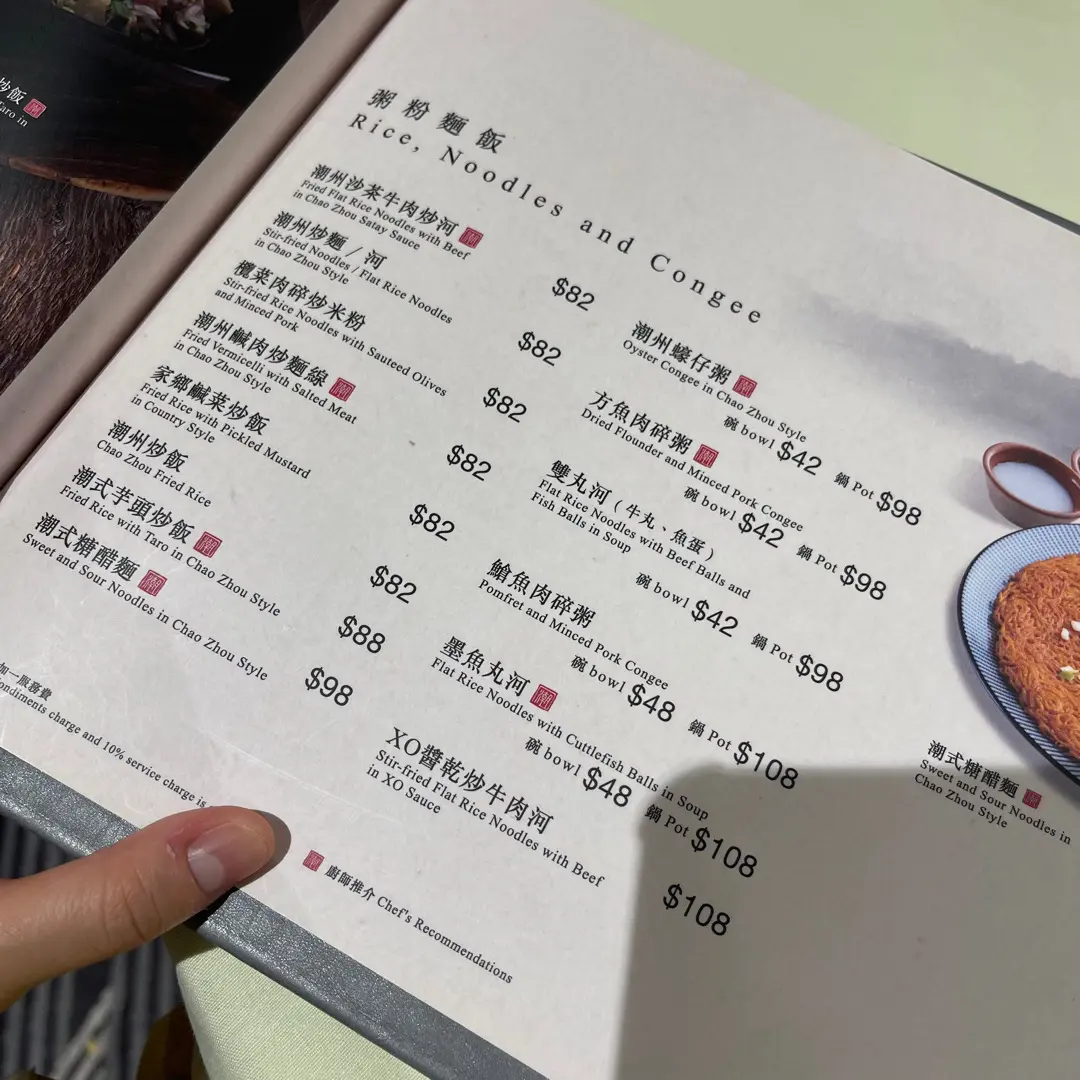 炒飯
Taro in
粥粉麵飯
Rice, Noodles and Congee
潮州沙茶牛肉炒河 潮
Fried Flat Rice Noodles with Beef
in Chao Zhou Satay Sauce
$82
潮州炒麵 / 河
Stir-fried Noodles / Flat Rice Noodles
in Chao Zhou Style
$82
欖菜肉碎炒米粉
Stir-fried Rice Noodles with Sauteed Olives
and Minced Pork
$82
潮州鹹肉炒麵線 潮
Fried Vermicelli with Salted Meat
in Chao Zhou Style
$82
家鄉鹹菜炒飯
Fried Rice with Pickled Mustard
in Country Style
$82
潮州炒飯
Chao Zhou Fried Rice
$82
潮式芋頭炒飯 潮
Fried Rice with Taro in Chao Zhou Style
$88
潮式糖醋麵 潮
Sweet and Sour Noodles in Chao Zhou Style
$98
潮州蠔仔粥 潮
Oyster Congee in Chao Zhou Style
碗 bowl $42 鍋 Pot $98
方魚肉碎粥 潮
Dried Flounder and Minced Pork Congee
碗 bowl $42 鍋 Pot $98
雙丸河 ( 牛丸、魚蛋 )
Flat Rice Noodles with Beef Balls and
Fish Balls in Soup
碗 bowl $42 鍋 Pot $98
鯧魚肉碎粥
Pomfret and Minced Pork Congee
碗 bowl $48 鍋 Pot $108
墨魚丸河 潮
Flat Rice Noodles with Cuttlefish Balls in Soup
碗 bowl $48 鍋 Pot $108
XO醬乾炒牛肉河
Stir-fried Flat Rice Noodles with Beef
in XO Sauce
$108
潮式糖醋麵 潮
Sweet and Sour Noodles in
Chao Zhou Style
加一服務費
ondiments charge and 10% service charge is
潮 廚師推介 Chef's Recommendations